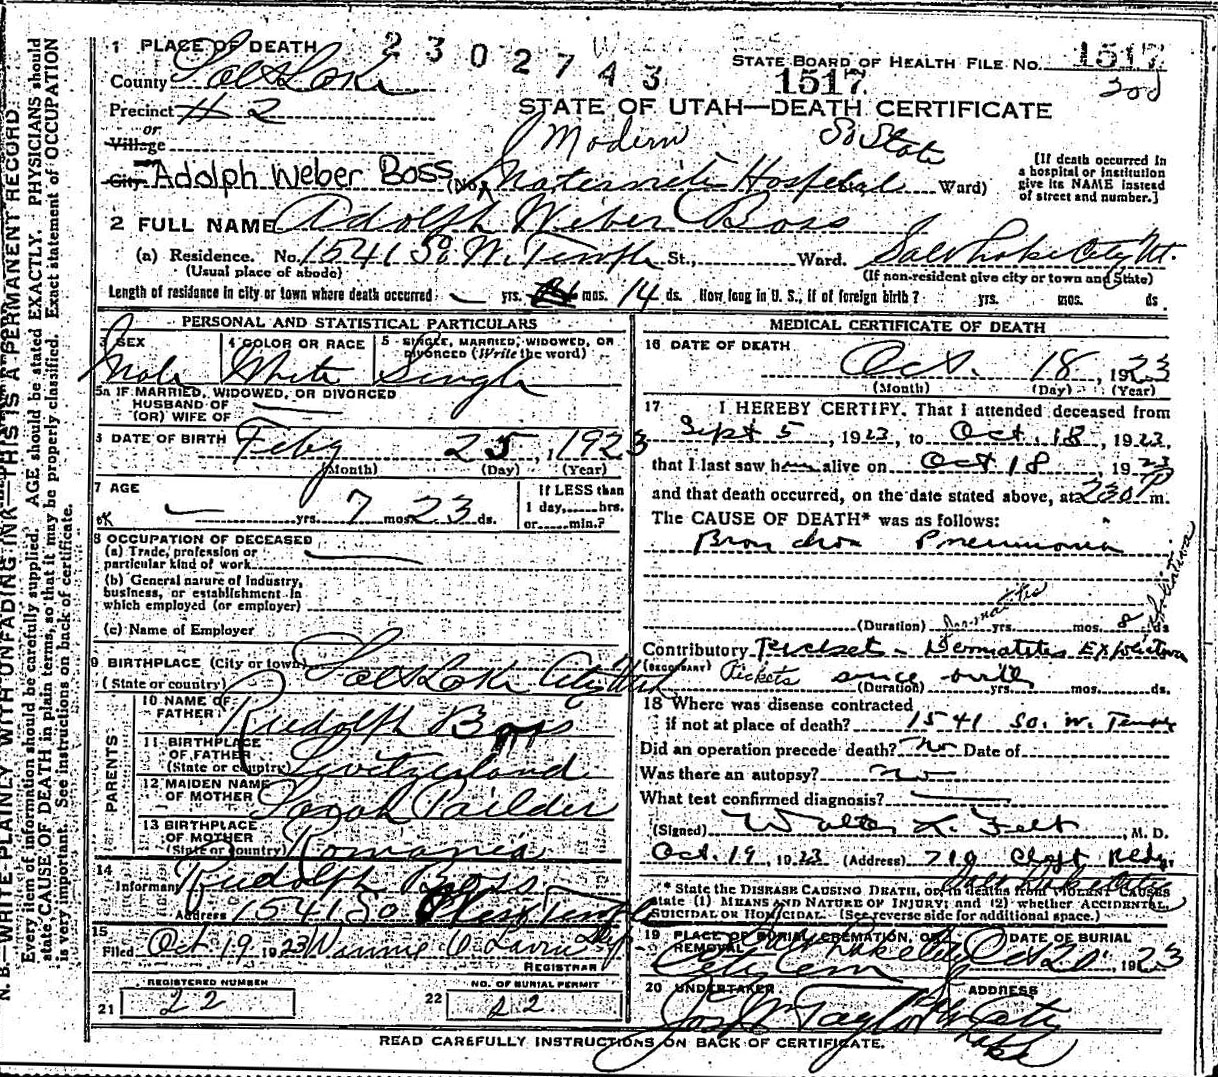 2 3 0 2 7 4 3
1517
STATE BOARD OF HEALTH FILE NO. 1517
STATE OF UTAH—DEATH CERTIFICATE
1 PLACE OF DEATH
County Salt Lake
Precinct # 2
or
Village
City Adolph Weber Boss (No. Modern Maternite Hospital So State Ward)
[If death occurred in a hospital or institution give its NAME instead of street and number.]
2 FULL NAME Adolph Weber Boss
(a) Residence. No. 1541 So. W. Temple St., Ward. Salt Lake City Ut.
(Usual place of abode) (If non-resident give city or town and State)
Length of residence in city or town where death occurred — yrs. mos. 14 ds. How long in U. S., if of foreign birth? yrs. mos. ds
PERSONAL AND STATISTICAL PARTICULARS
3 SEX Male
4 COLOR OR RACE White
5 SINGLE, MARRIED, WIDOWED, OR DIVORCED (Write the word) Single
5a IF MARRIED, WIDOWED, OR DIVORCED
HUSBAND OF
(OR) WIFE OF —
6 DATE OF BIRTH Feby 25, 1923
(Month) (Day) (Year)
7 AGE — yrs. 7 mos. 23 ds.
If LESS than 1 day,......hrs. or......min.?
8 OCCUPATION OF DECEASED
(a) Trade, profession or particular kind of work —
(b) General nature of Industry, business, or establishment in which employed (or employer)
(c) Name of Employer
9 BIRTHPLACE (City or town) Salt Lake City Utah
(State or country)
PARENTS
10 NAME OF FATHER Rudolph Boss
11 BIRTHPLACE OF FATHER (State or country) Switzerland
12 MAIDEN NAME OF MOTHER Sarah
13 BIRTHPLACE OF MOTHER (State or country) Romania
14 Informant Rudolph Boss
Address 1541 So West Temple
15 Filed Oct 19 1923 Winnie
REGISTRAR
REGISTERED NUMBER
21 22
NO. OF BURIAL PERMIT
22 22
MEDICAL CERTIFICATE OF DEATH
16 DATE OF DEATH Oct. 18, 1923
(Month) (Day) (Year)
17 I HEREBY CERTIFY, That I attended deceased from
Sept 5, 1923, to Oct. 18, 1923,
that I last saw him alive on Oct 18, 1923
and that death occurred, on the date stated above, at 230 P m.
The CAUSE OF DEATH* was as follows:
Broncho Pneumonia
(Duration) yrs. mos. 8 ds
Contributory Rickets - Dermatitis Exfoliativa
(SECONDARY) Rickets since birth
(Duration) yrs. mos. ds.
18 Where was disease contracted
if not at place of death? 1541 So. W. Temple
Did an operation precede death? No Date of
Was there an autopsy? no
What test confirmed diagnosis? —
(Signed) Walter L. Felt, M. D.
Oct. 19, 1923 (Address) 710 Clift Bldg.
Salt Lake City
* State the DISEASE CAUSING DEATH, or, in deaths from VIOLENT CAUSES state (1) MEANS AND NATURE OF INJURY; and (2) whether ACCIDENTAL, SUICIDAL OR HOMICIDAL. (See reverse side for additional space.)
19 PLACE OF BURIAL, CREMATION, OR REMOVAL City Cem
DATE OF BURIAL Oct 20, 1923
20 UNDERTAKER Jos W Taylor
ADDRESS Salt Lake City
READ CAREFULLY INSTRUCTIONS ON BACK OF CERTIFICATE.
N. B.—WRITE PLAINLY WITH UNFADING INK—THIS IS A PERMANENT RECORD.
Every item of information should be carefully supplied. AGE should be stated EXACTLY. PHYSICIANS should
state CAUSE OF DEATH in plain terms, so that it may be properly classified. Exact statement of OCCUPATION
is very important. See instructions on back of certificate.